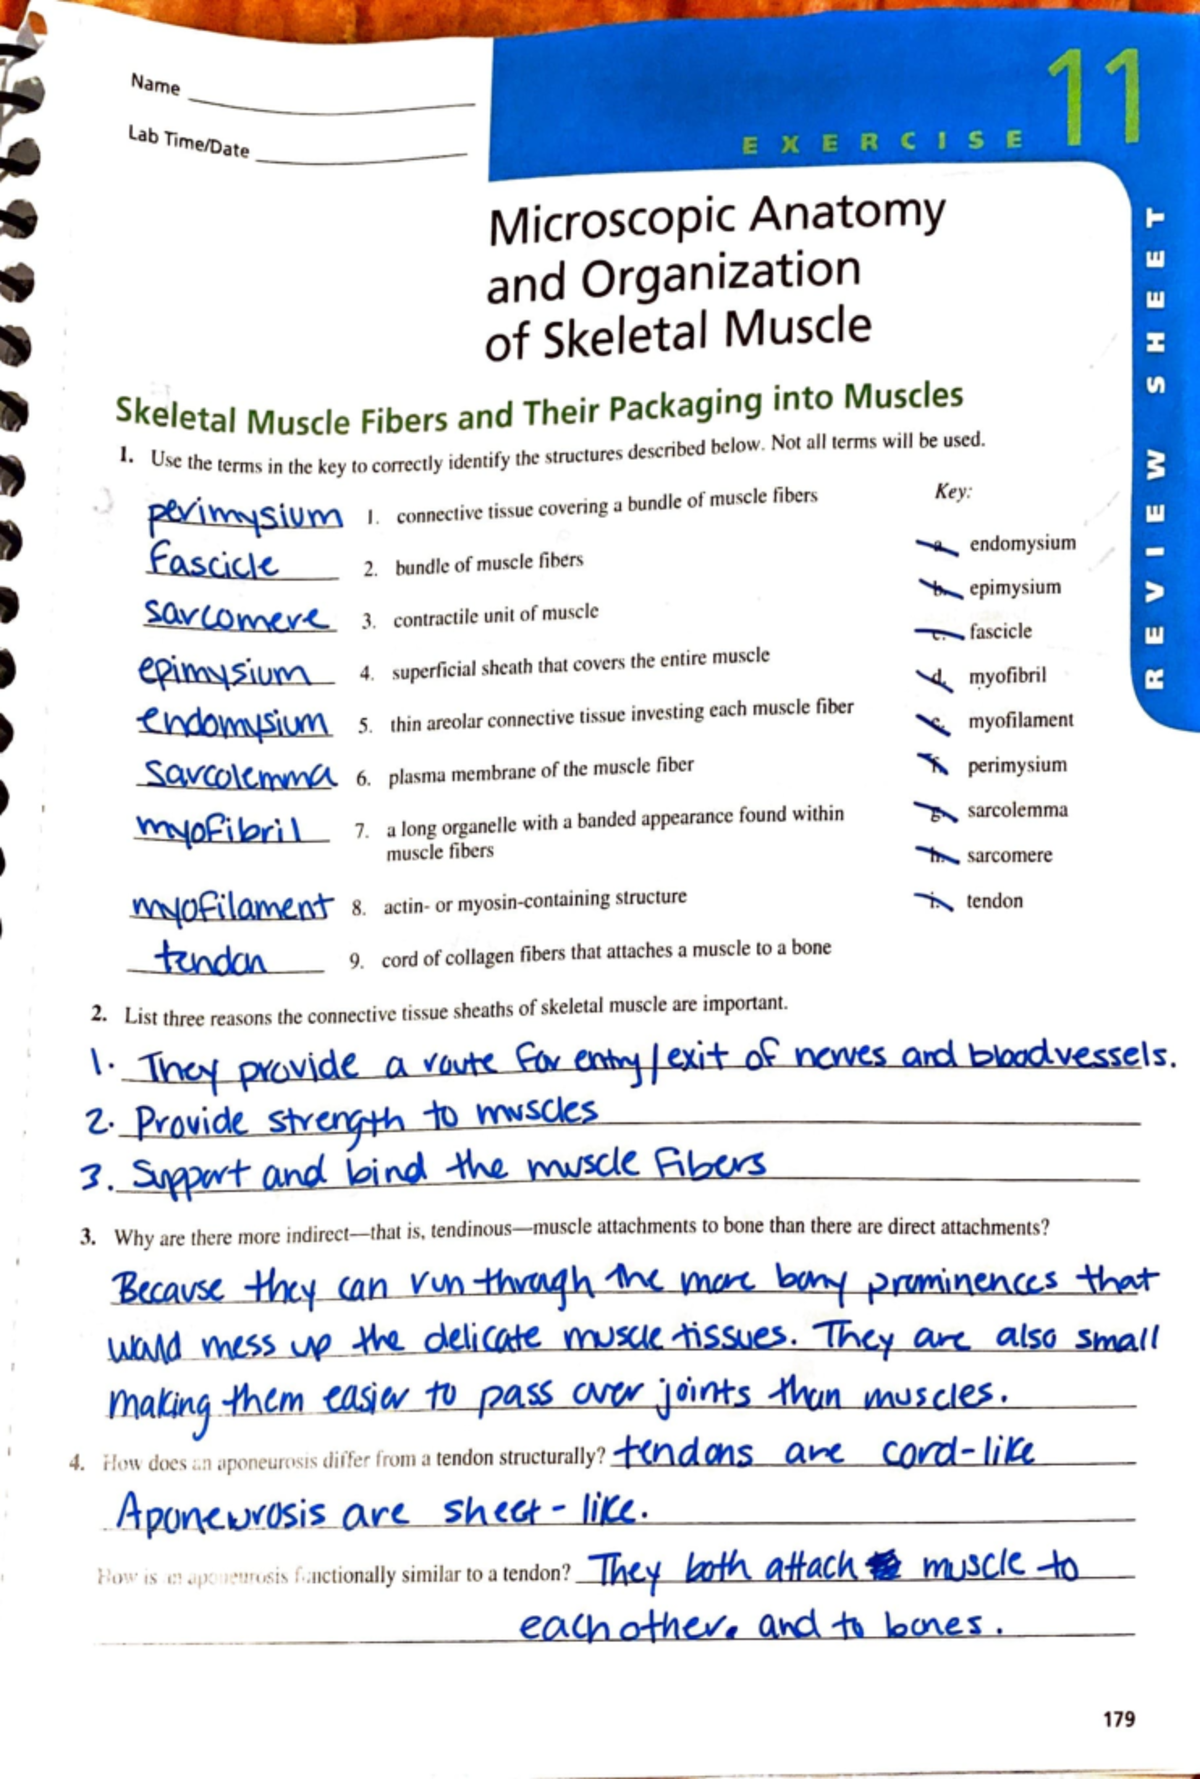 Name
Lab Time/Date
EXERCISE 11
REVIEW SHEET
Microscopic Anatomy
and Organization
of Skeletal Muscle
Skeletal Muscle Fibers and Their Packaging into Muscles
1. Use the terms in the key to correctly identify the structures described below. Not all terms will be used.
Key:
perimysium 1. connective tissue covering a bundle of muscle fibers
a. endomysium
Fascicle 2. bundle of muscle fibers
b. epimysium
sarcomere 3. contractile unit of muscle
c. fascicle
epimysium 4. superficial sheath that covers the entire muscle
d. myofibril
endomysium 5. thin areolar connective tissue investing each muscle fiber
e. myofilament
Sarcolemma 6. plasma membrane of the muscle fiber
f. perimysium
myofibril 7. a long organelle with a banded appearance found within
muscle fibers
g. sarcolemma
h. sarcomere
myofilament 8. actin- or myosin-containing structure
i. tendon
tendon 9. cord of collagen fibers that attaches a muscle to a bone
2. List three reasons the connective tissue sheaths of skeletal muscle are important.
1. They provide a route for entry/exit of nerves and bloodvessels.
2. Provide strength to muscles
3. Support and bind the muscle Fibers
3. Why are there more indirect—that is, tendinous—muscle attachments to bone than there are direct attachments?
Because they can run through the more bony prominences that
would mess up the delicate muscle tissues. They are also small
making them easier to pass over joints than muscles.
4. How does an aponeurosis differ from a tendon structurally? tendons are cord-like
Aponeurosis are sheet-like.
How is an aponeurosis functionally similar to a tendon? They both attach muscle to
each other. and to bones.
179